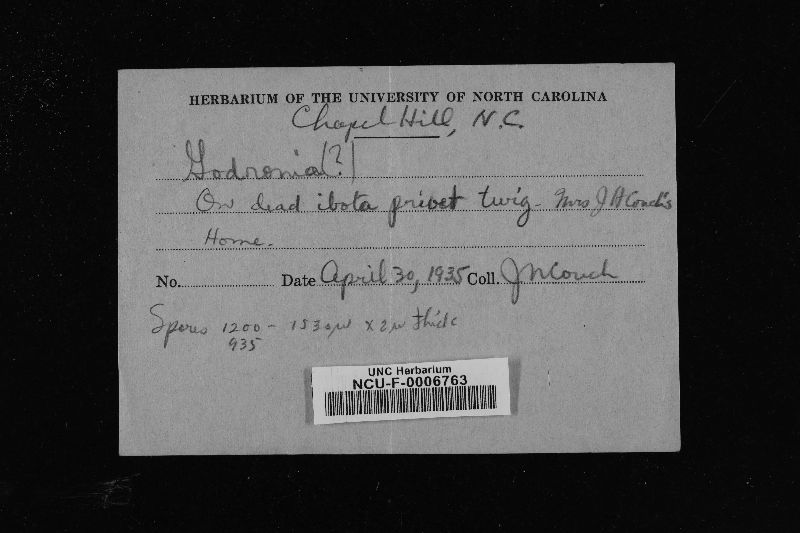 HERBARIUM OF THE UNIVERSITY OF NORTH CAROLINA
Chapel Hill, N.C.
Godronia (?)
On dead ibota privet twig - Mrs J A Couch's
Home.
No. Date April 30, 1935 Coll. J N Couch
Spores 1200 - 1530µ x 2µ thick
935
UNC Herbarium
NCU-F-0006763